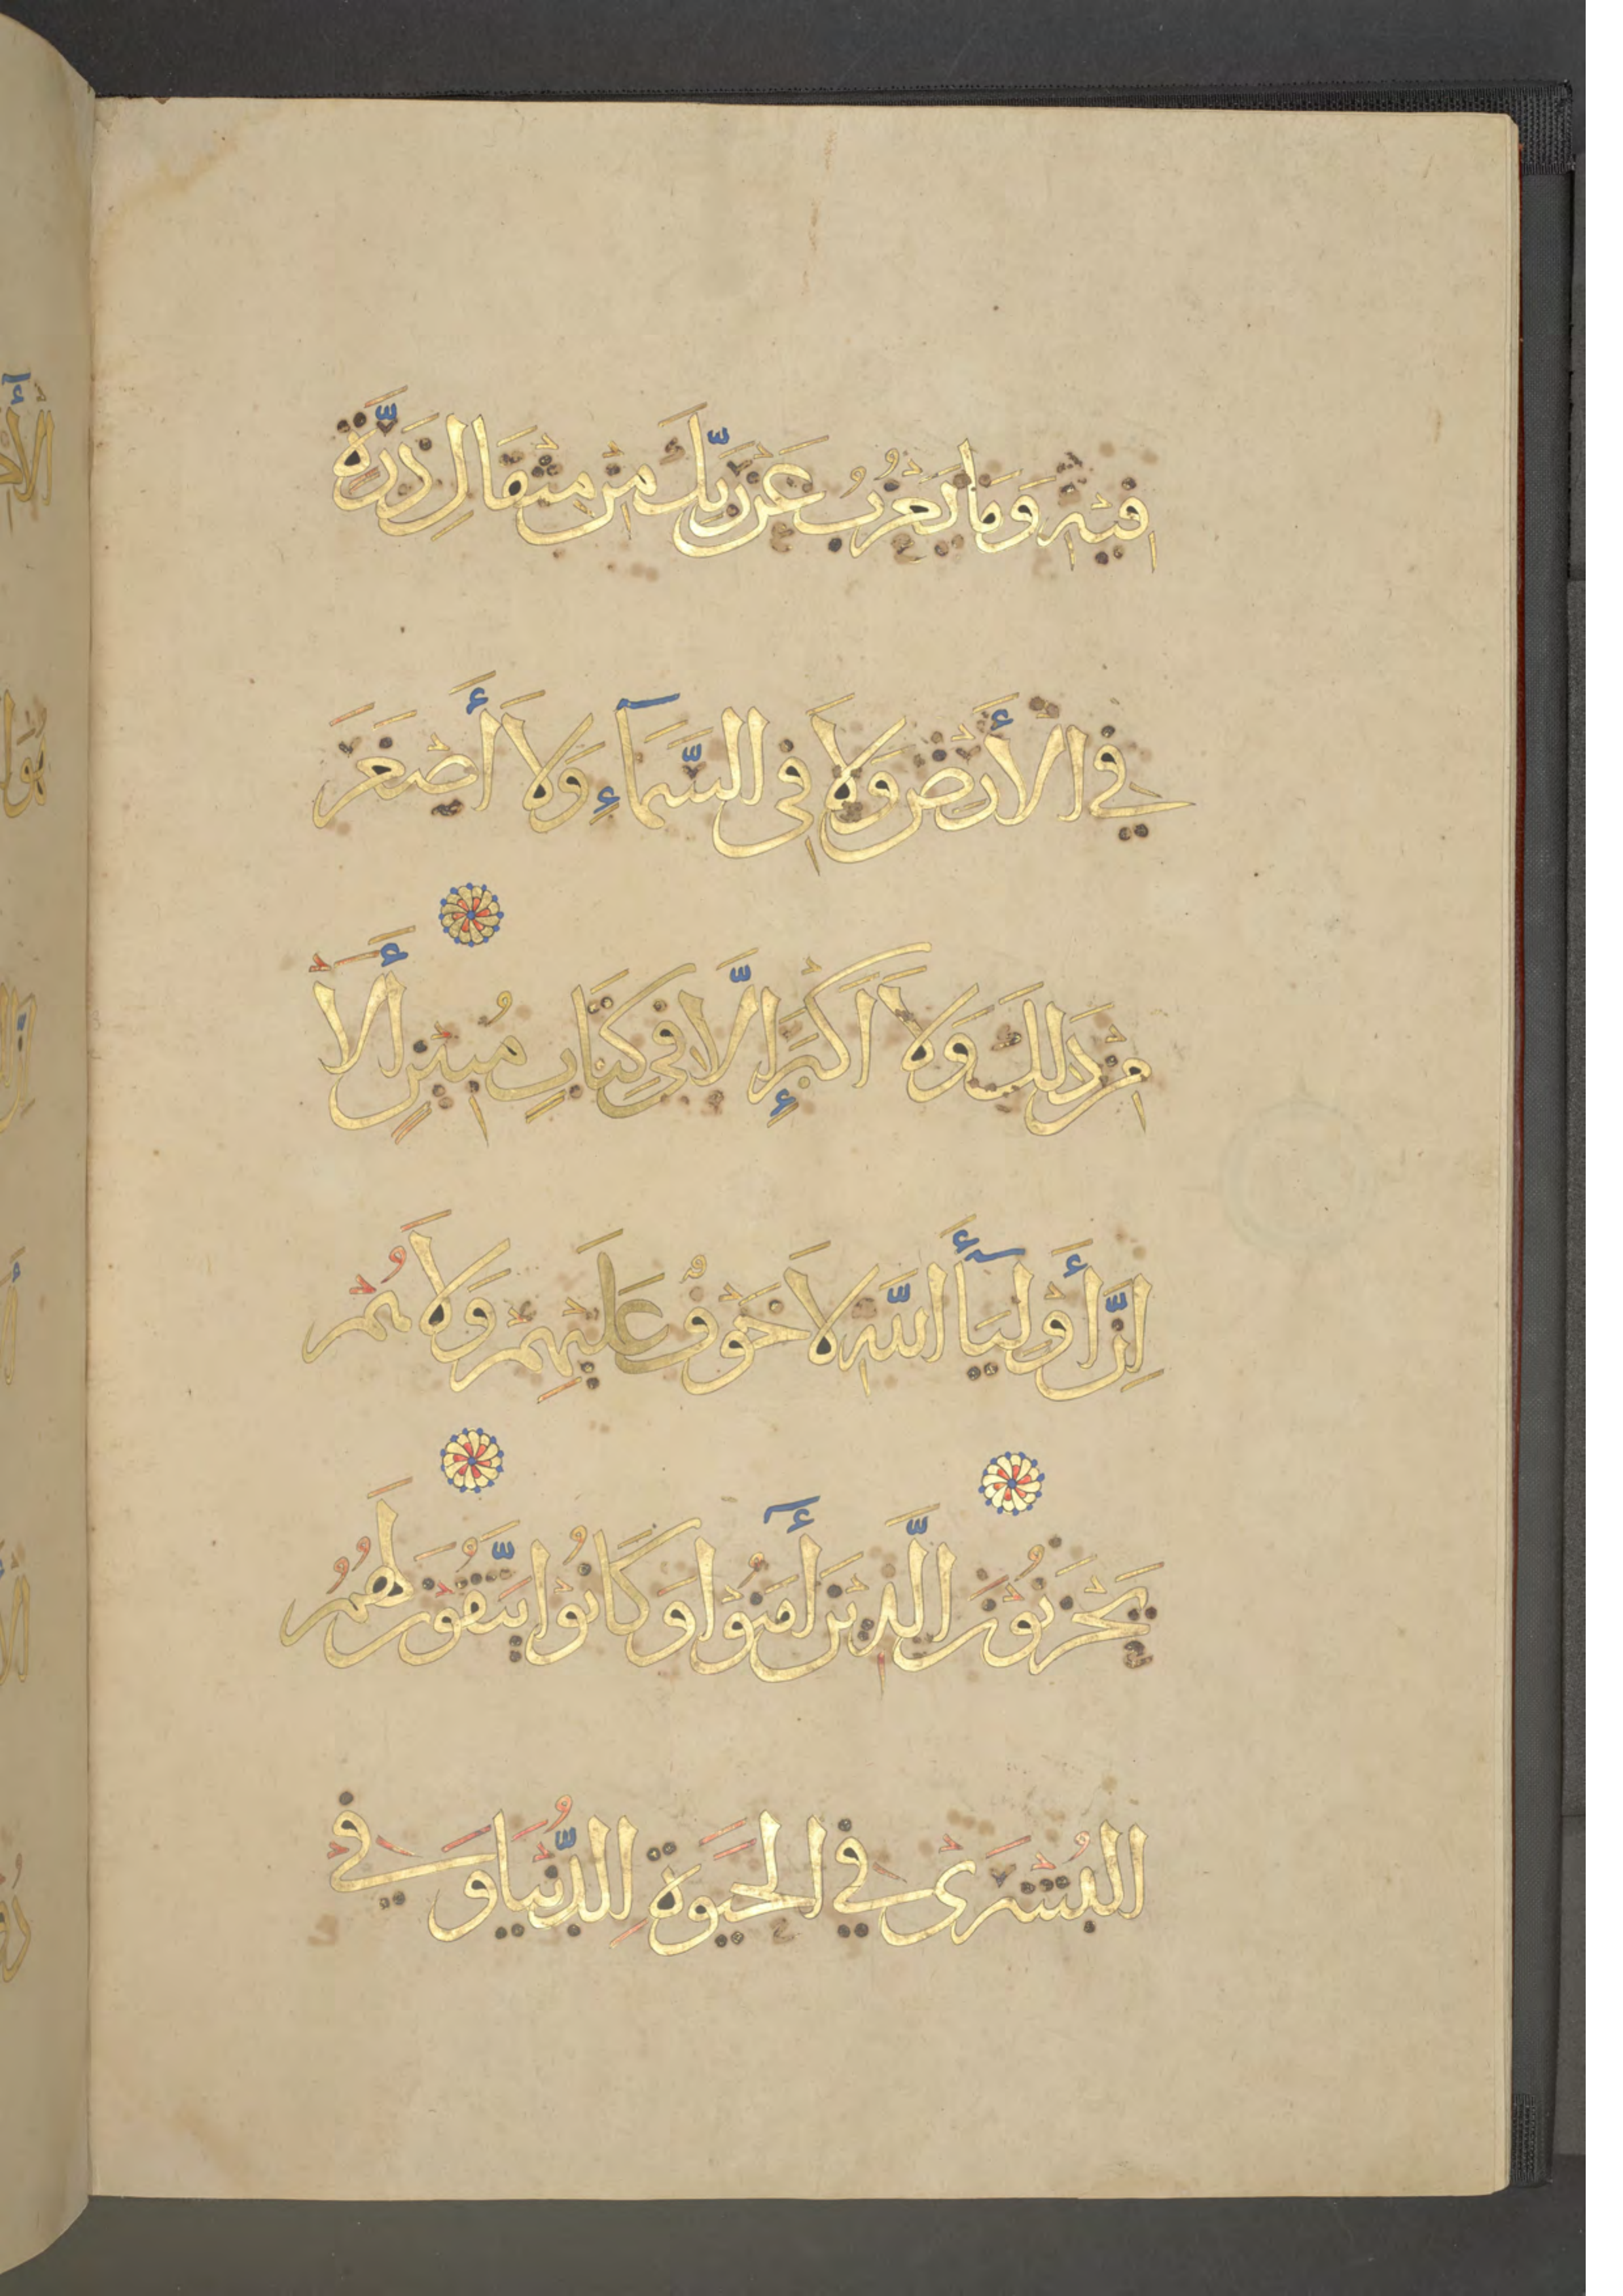 فِيهِ وَمَا يَعْزُبُ عَنْ رَبِّكَ مِنْ مِثْقَالِ ذَرَّةٍ
فِي الْأَرْضِ وَلَا فِي السَّمَآءِ وَلَا أَصْغَرَ
مِنْ ذَلِكَ وَلَا أَكْبَرَ إِلَّا فِي كِتَابٍ مُبِينٍ أَلَا
إِنَّ أَوْلِيَآءَ اللَّهِ لَا خَوْفٌ عَلَيْهِمْ وَلَا هُمْ
يَحْزَنُونَ الَّذِينَ أٓمَنُوا وَكَانُوا يَتَّقُونَ لَهُمُ
الْبُشْرَى فِي الْحَيَوةِ الدُّنْيَا وَفِي